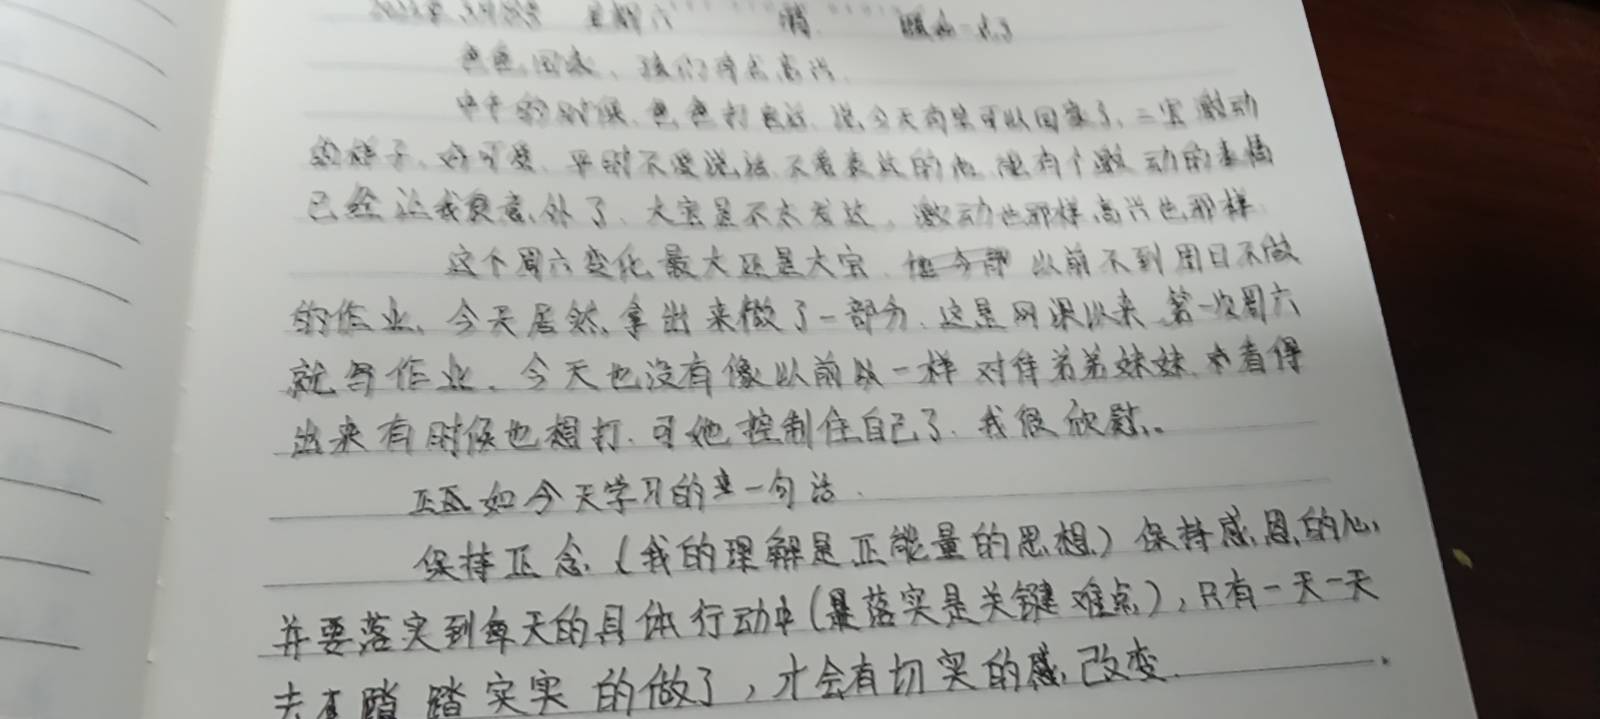 星期六 晴
爸爸回来、孩们特点高兴.
中午的时候.爸爸打电话.说今天向实可以回家了、二宝激动
的样子、好可爱.平时不爱说话.不善表达的他.能有个激动的表情
已经让我很意外了、大宝是不太发达,激动也那样高兴也那样
这个周六变化最大还是大宝. 以前不到周日不做
的作业、今天居然、拿出来做了一部分.这是网课以来.第一次周六
就写作业、今天也没有像以前以一样对待弟弟妹妹.也看得
出来有时候也想打.可她控制住自己了.我很欣慰。
正如今天学习的 一句话.
保持正念(我的理解是正能量的思想)保持感恩的心,
并要落实到每天的具体行动中(是落实是关键难点),只有一天一天
去 踏踏实实的做了,才会有切实的 改变.